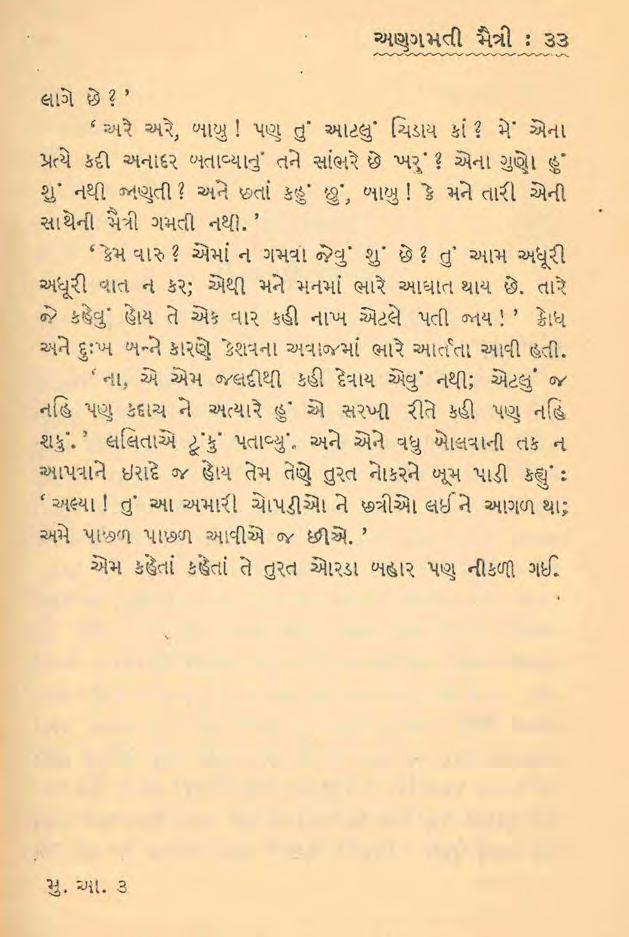 અણગમતી મૈત્રી : ૩૩
લાગે છે ? ’
‘ અરે અરે, બાબુ ! પણ તું આટલું ચિડાય કાં ? મેં એના
પ્રત્યે કદી અનાદર બતાવ્યાનું તને સાંભરે છે ખરું ? એના ગુણો હું
શું નથી જાણતી ? અને છતાં કહું છું, બાબુ ! કે મને તારી એની
સાથેની મૈત્રી ગમતી નથી. ’
‘ કેમ વારુ ? એમાં ન ગમવા જેવું શું છે ? તું આમ અધૂરી
અધૂરી વાત ન કર; એથી મને મનમાં ભારે આઘાત થાય છે. તારે
જે કહેવું હોય તે એક વાર કહી નાખ એટલે પતી જાય ! ’ ક્રોધ
અને દુઃખ બન્ને કારણે કેશવના અવાજમાં ભારે આર્તતા આવી હતી.
‘ ના, એ એમ જલદીથી કહી દેવાય એવું નથી; એટલું જ
નહિ પણ કદાચ ને અત્યારે હું એ સરખી રીતે કહી પણ નહિ
શકું. ’ લલિતાએ ટૂંકું પતાવ્યું. અને એને વધુ બોલવાની તક ન
આપવાને ઇરાદે જ હોય તેમ તેણે તુરત નોકરને બૂમ પાડી કહ્યું :
‘ અલ્યા ! તું આ અમારી ચોપડીઓ ને છત્રીઓ લઈ ને આગળ થા;
અમે પાછળ પાછળ આવીએ જ છીએ. ’
એમ કહેતાં કહેતાં તે તુરત ઓરડા બહાર પણ નીકળી ગઈ.
મુ. આ. ૩